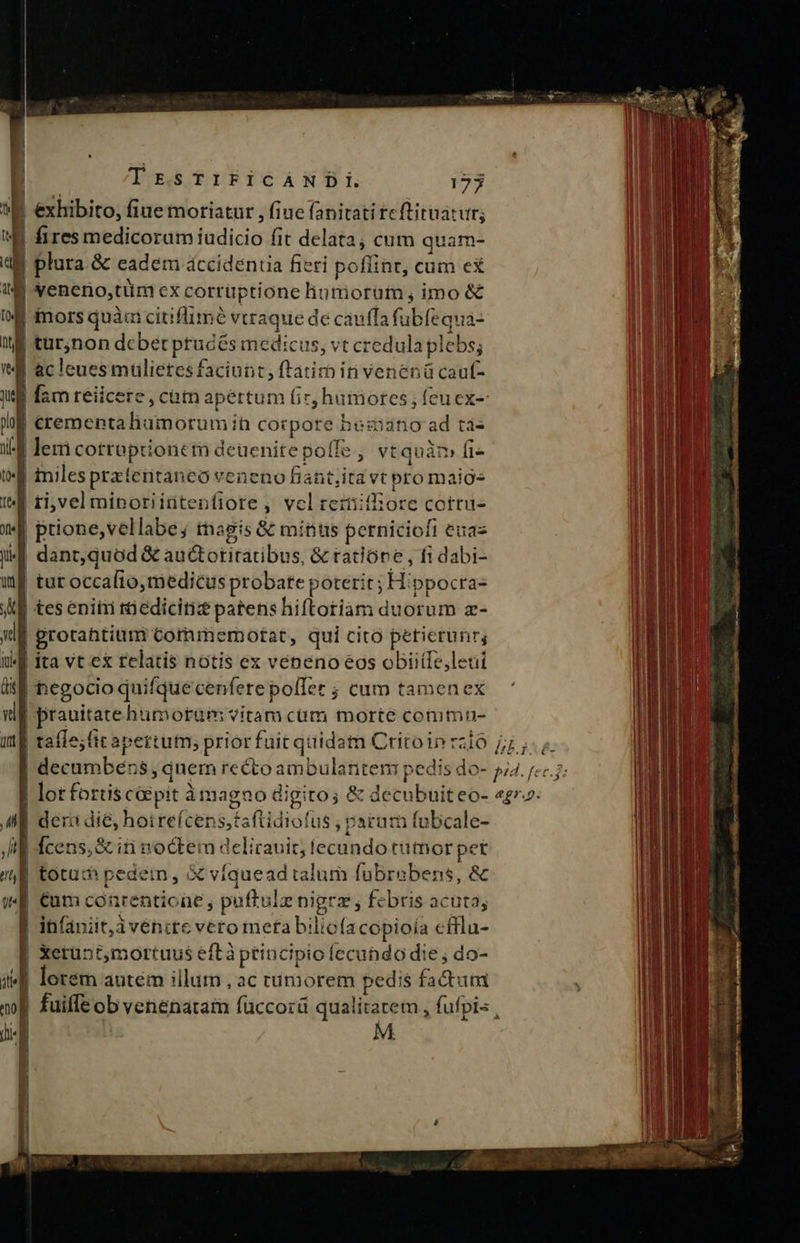 TESTIFICANDI. 177
exhibito, ſiue moriatur, ſiue ſanitati reſtituatur;
ſi res medicorum iudicio ſit delata, cum quam-
plura & eadem accidentia fieri poſſint, cum ex
veneno, tùm ex corruptione humorum, imo &
mors quàm citiſſimè vtraque de cauſſa ſubſequa-
tur, non debet prudēs medicus, vt credula plebs,
ac leues mulieres faciunt, ſtatim in venenū cauſ-
ſam reiicere, cùm apertum ſit, humores, ſeu ex-
crementa humorum in corpore humano ad ta-
lem corruptionem deuenire poſſe, vt quàm ſi-
miles præſentaneo veneno fiant, ita vt pro maio-
ri, vel minori intenſiore, vel remiſſiore corru-
ptione, vel labe, magis & minùs pernicioſi eua-
dant, quod & auctoritatibus, & ratione, ſi dabi-
tur occaſio, medicus probare poterit; Hippocra-
tes enim medicinæ parens hiſtoriam duorum æ-
grotantium commemorat, qui cito perierunt,
ita vt ex relatis notis ex veneno eos obiiſſe, leui
negocio quiſque cenſere poſſet; cum tamen ex
prauitate humorum vitam cùm morte commu-
taſſe, ſit apertum; prior fuit quidam Crito in
decumbens, quem recto ambulantem pedis do-
lor fortis cœpit à magno digito; & decubuit eo-
dem die, horreſcens, faſtidioſus, parum ſubcale-
ſcens, & in noctem delirauit; ſecundo tumor per
totum pedem, & vſque ad talum ſubrubens, &
cum contentione, puſtulæ nigræ, febris acuta,
inſaniit, à ventre vero mera bilioſa copioſa efflu-
xerunt, mortuus eſt à principio ſecundo die, do-
lorem autem illum, ac tumorem pedis factum
fuiſſe ob venenatam ſuccorū qualitatem, ſuſpi-
M